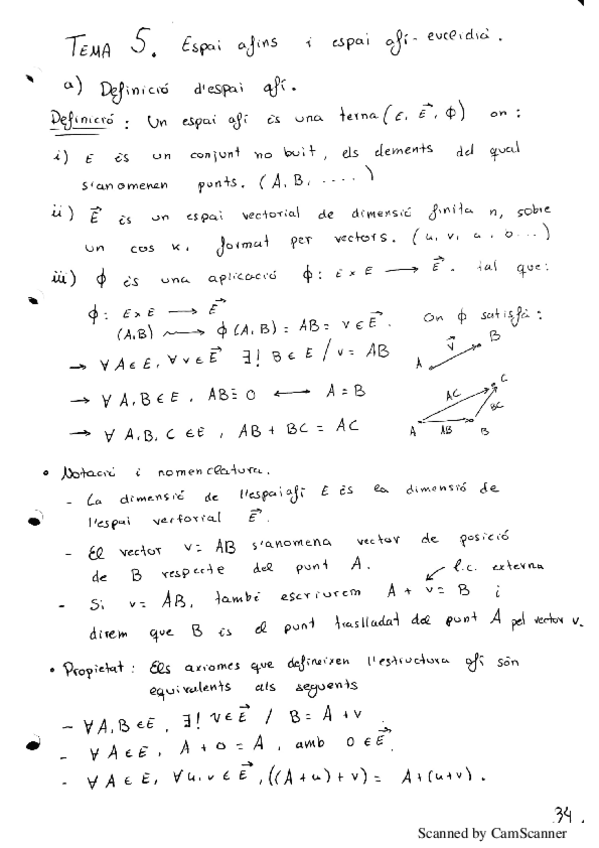 TEMA 5. Espai afins i espai afí-euclidià.
a) Definició d'espai afí.
Definició: Un espai afí és una terna (E, E⃗, ϕ) on:
i) E és un conjunt no buit, els elements del qual
s'anomenen punts. (A, B, ....)
ii) E⃗ és un espai vectorial de dimensió finita n, sobre
un cos K, format per vectors. (u, v, a, b...)
iii) ϕ és una aplicació ϕ: E×E ⟶ E⃗. tal que:
ϕ: E×E ⟶ E⃗
(A,B) ⟿ ϕ(A,B) = AB = v ∈ E⃗. On ϕ satisfà:
→ ∀A∈E, ∀v∈E⃗ ∃! B∈E / v = AB
A v⃗ B
→ ∀A,B∈E, AB = 0 ⟷ A = B
→ ∀A,B,C ∈E, AB + BC = AC
A AB B BC C AC
• Notació i nomenclatura.
- La dimensió de l'espai afí E és la dimensió de
l'espai vectorial E⃗.
- El vector v = AB s'anomena vector de posició
de B respecte del punt A.
l.c. externa
- Si v = AB, també escriurem A + v = B i
direm que B és el punt traslladat del punt A pel vector v.
• Propietat: Els axiomes que defineixen l'estructura afí són
equivalents als seguents
- ∀A,B∈E, ∃! v∈E⃗ / B = A+v
- ∀A∈E, A + 0 = A, amb 0∈E⃗.
- ∀A∈E, ∀u,v∈E⃗, ((A+u)+v) = A+(u+v).
34.
Scanned by CamScanner